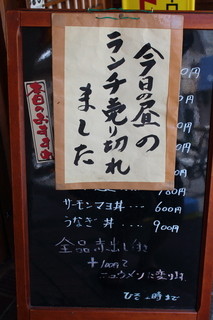 今日の昼の
ランチ売り切れ
ました
本日のおすすめ
00円
780円
サーモンマヨ丼・・・600円
うなぎ丼・・・900円
全品 赤出し付
+100円で
ニュウメンに変ります。
ひる二時まで